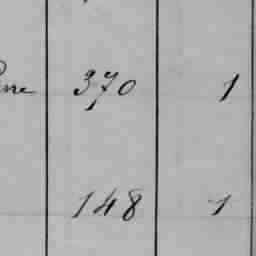 370 1
148 1